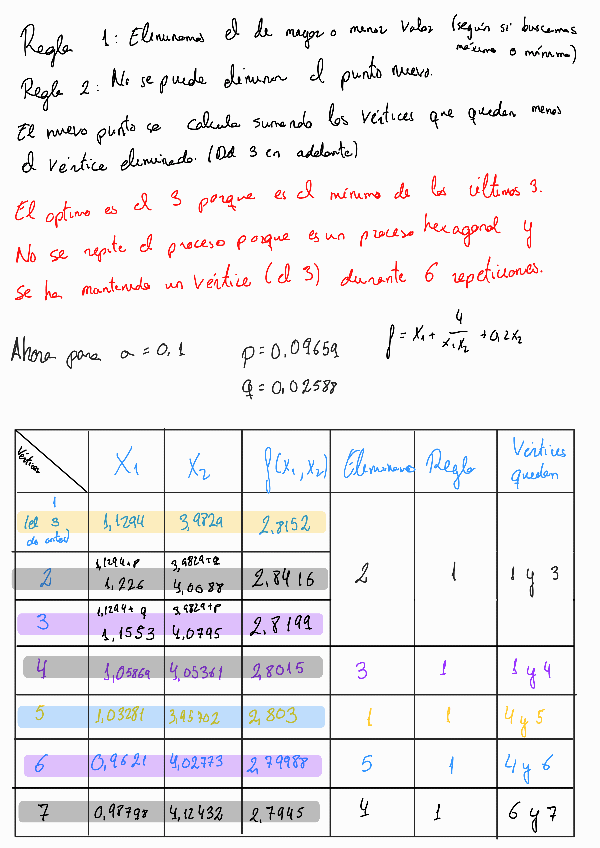 Regla 1: Eliminamos el de mayor o menor valor (según si buscamos
máximo o mínimo)
Regla 2: No se puede eliminar el punto nuevo.
El nuevo punto se calcula sumando los vértices que quedan menos
el vértice eliminado. (Del 3 en adelante)
El optimo es el 3 porque es el mínimo de los últimos 3.
No se repite el proceso porque es un proceso hexagonal y
se ha mantenido un vértice (el 3) durante 6 repeticiones.
Ahora para a = 0,1 p = 0,09659 f = x1 + 4/x1x2 + 0,2x2
q = 0,02588
Vértices X1 X2 f(x1,x2) Eliminamos Regla Vértices quedan
1 (el 3 de antes) 1,1294 3,9829 2,8152
1,1294+p 3,9829+q
2 1,226 4,0088 2,8416 2 1 1 y 3
1,1294+q 3,9829+p
3 1,1553 4,0795 2,8199
4 1,05869 4,05361 2,8015 3 1 1 y 4
5 1,03281 3,95702 2,803 1 1 4 y 5
6 0,9621 4,02773 2,79988 5 1 4 y 6
7 0,98798 4,12432 2,7945 4 1 6 y 7